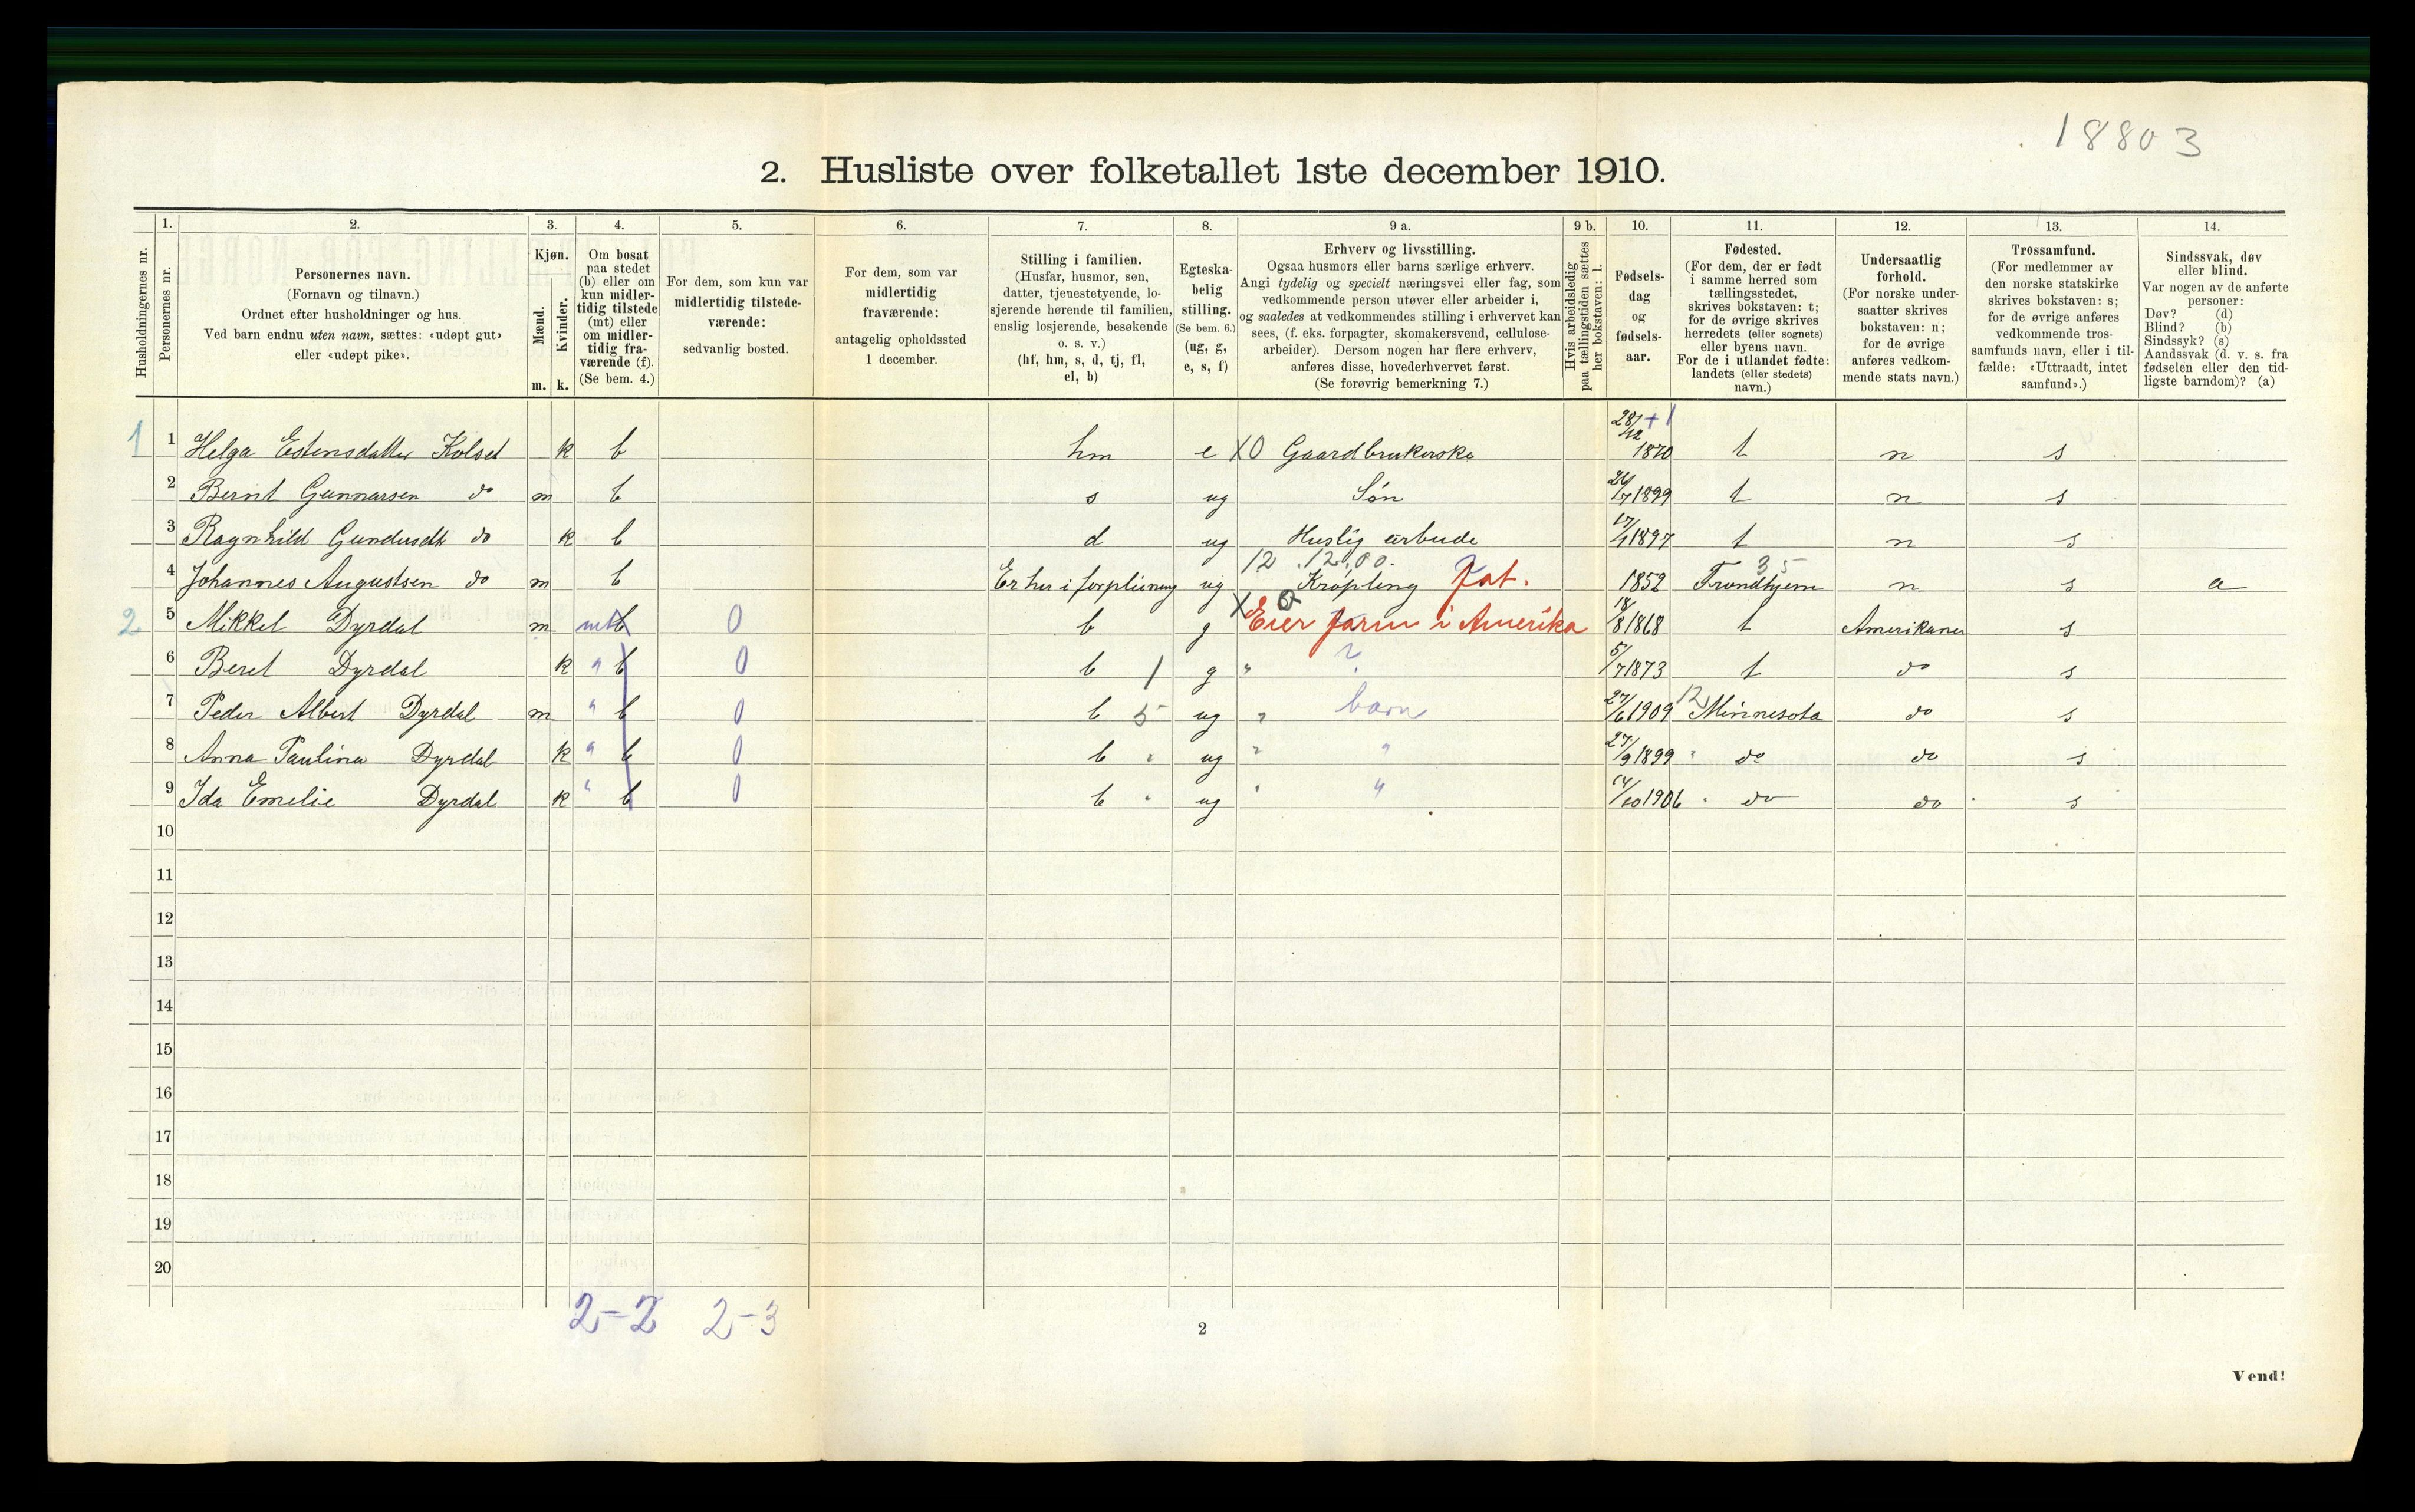 18803
2. Husliste over folketallet 1ste december 1910.
Husholdningernes nr.
1.
Personernes nr.
2.
Personernes navn.
(Fornavn og tilnavn.)
Ordnet efter husholdninger og hus.
Ved barn endnu uten navn, sættes: «udøpt gut»
eller «udøpt pike».
3.
Kjøn.
Mænd.
m.
Kvinder.
k.
4.
Om bosat
paa stedet
(b) eller om
kun midler-
tidig tilstede
(mt) eller
om midler-
tidig fra-
værende (f).
(Se bem. 4.)
5.
For dem, som kun var
midlertidig tilstede-
værende:
sedvanlig bosted.
6.
For dem, som var
midlertidig
fraværende:
antagelig opholdssted
1 december.
7.
Stilling i familien.
(Husfar, husmor, søn,
datter, tjenestetyende, lo-
sjerende hørende til familien,
enslig losjerende, besøkende
o. s. v.)
(hf, hm, s, d, tj, fl,
el, b)
8.
Egteska-
belig
stilling.
(Se bem. 6.)
(ug, g,
e, s, f)
9 a.
Erhverv og livsstilling.
Ogsaa husmors eller barns særlige erhverv.
Angi tydelig og specielt næringsvei eller fag, som
vedkommende person utøver eller arbeider i,
og saaledes at vedkommendes stilling i erhvervet kan
sees, (f. eks. forpagter, skomakersvend, cellulose-
arbeider). Dersom nogen har flere erhverv,
anføres disse, hovederhvervet først.
(Se forøvrig bemerkning 7.)
9 b.
Hvis arbeidsledig
paa tællingstiden sættes
her bokstaven: l.
10.
Fødsels-
dag
og
fødsels-
aar.
11.
Fødested.
(For dem, der er født
i samme herred som
tællingsstedet,
skrives bokstaven: t;
for de øvrige skrives
herredets (eller sognets)
eller byens navn.
For de i utlandet fødte:
landets (eller stedets)
navn.)
12.
Undersaatlig
forhold.
(For norske under-
saatter skrives
bokstaven: n;
for de øvrige
anføres vedkom-
mende stats navn.)
13.
Trossamfund.
(For medlemmer av
den norske statskirke
skrives bokstaven: s;
for de øvrige anføres
vedkommende tros-
samfunds navn, eller i til-
fælde: «Uttraadt, intet
samfund».)
14.
Sindssvak, døv
eller blind.
Var nogen av de anførte
personer:
Døv? (d)
Blind? (b)
Sindssyk? (s)
Aandssvak (d. v. s. fra
fødselen eller den tid-
ligste barndom)? (a)
28/12 + 1
1 1 Helga Estensdatter Kolset k b hm e X0 Gaardbrukerske 1870 t n s
2 Bernt Gunnarsen do m b s ug Søn 24/7 1899 t n s
3 Ragnhild Gundersdtr do k b d ug Huslig arbeide 17/1 1897 t n s
12 . 12,00. 35
4 Johannes Augustsen do m b Er her i forpleining ug Krøpling Fat. 1852 Trondhjem n s a
2 5 Mikkel Dyrdal m mt b 0 b g X 0 Eier farm i Amerika 18/8 1868 t Amerikaner s
6 Beret Dyrdal k " b 0 b 1 g " ? 5/7 1873 t do s
7 Peder Albert Dyrdal m " b 0 b 5 ug " barn 27/6 1909 12 Minnesota do s
8 Anna Paulina Dyrdal k " b 0 b " ug " " 27/9 1899 " do do s
9 Ida Emelie Dyrdal k " b 0 b " ug " " 14/10 1906 " do do s
10
11
12
13
14
15
16
17
18
19
20
2-2 2-3
2
Vend!